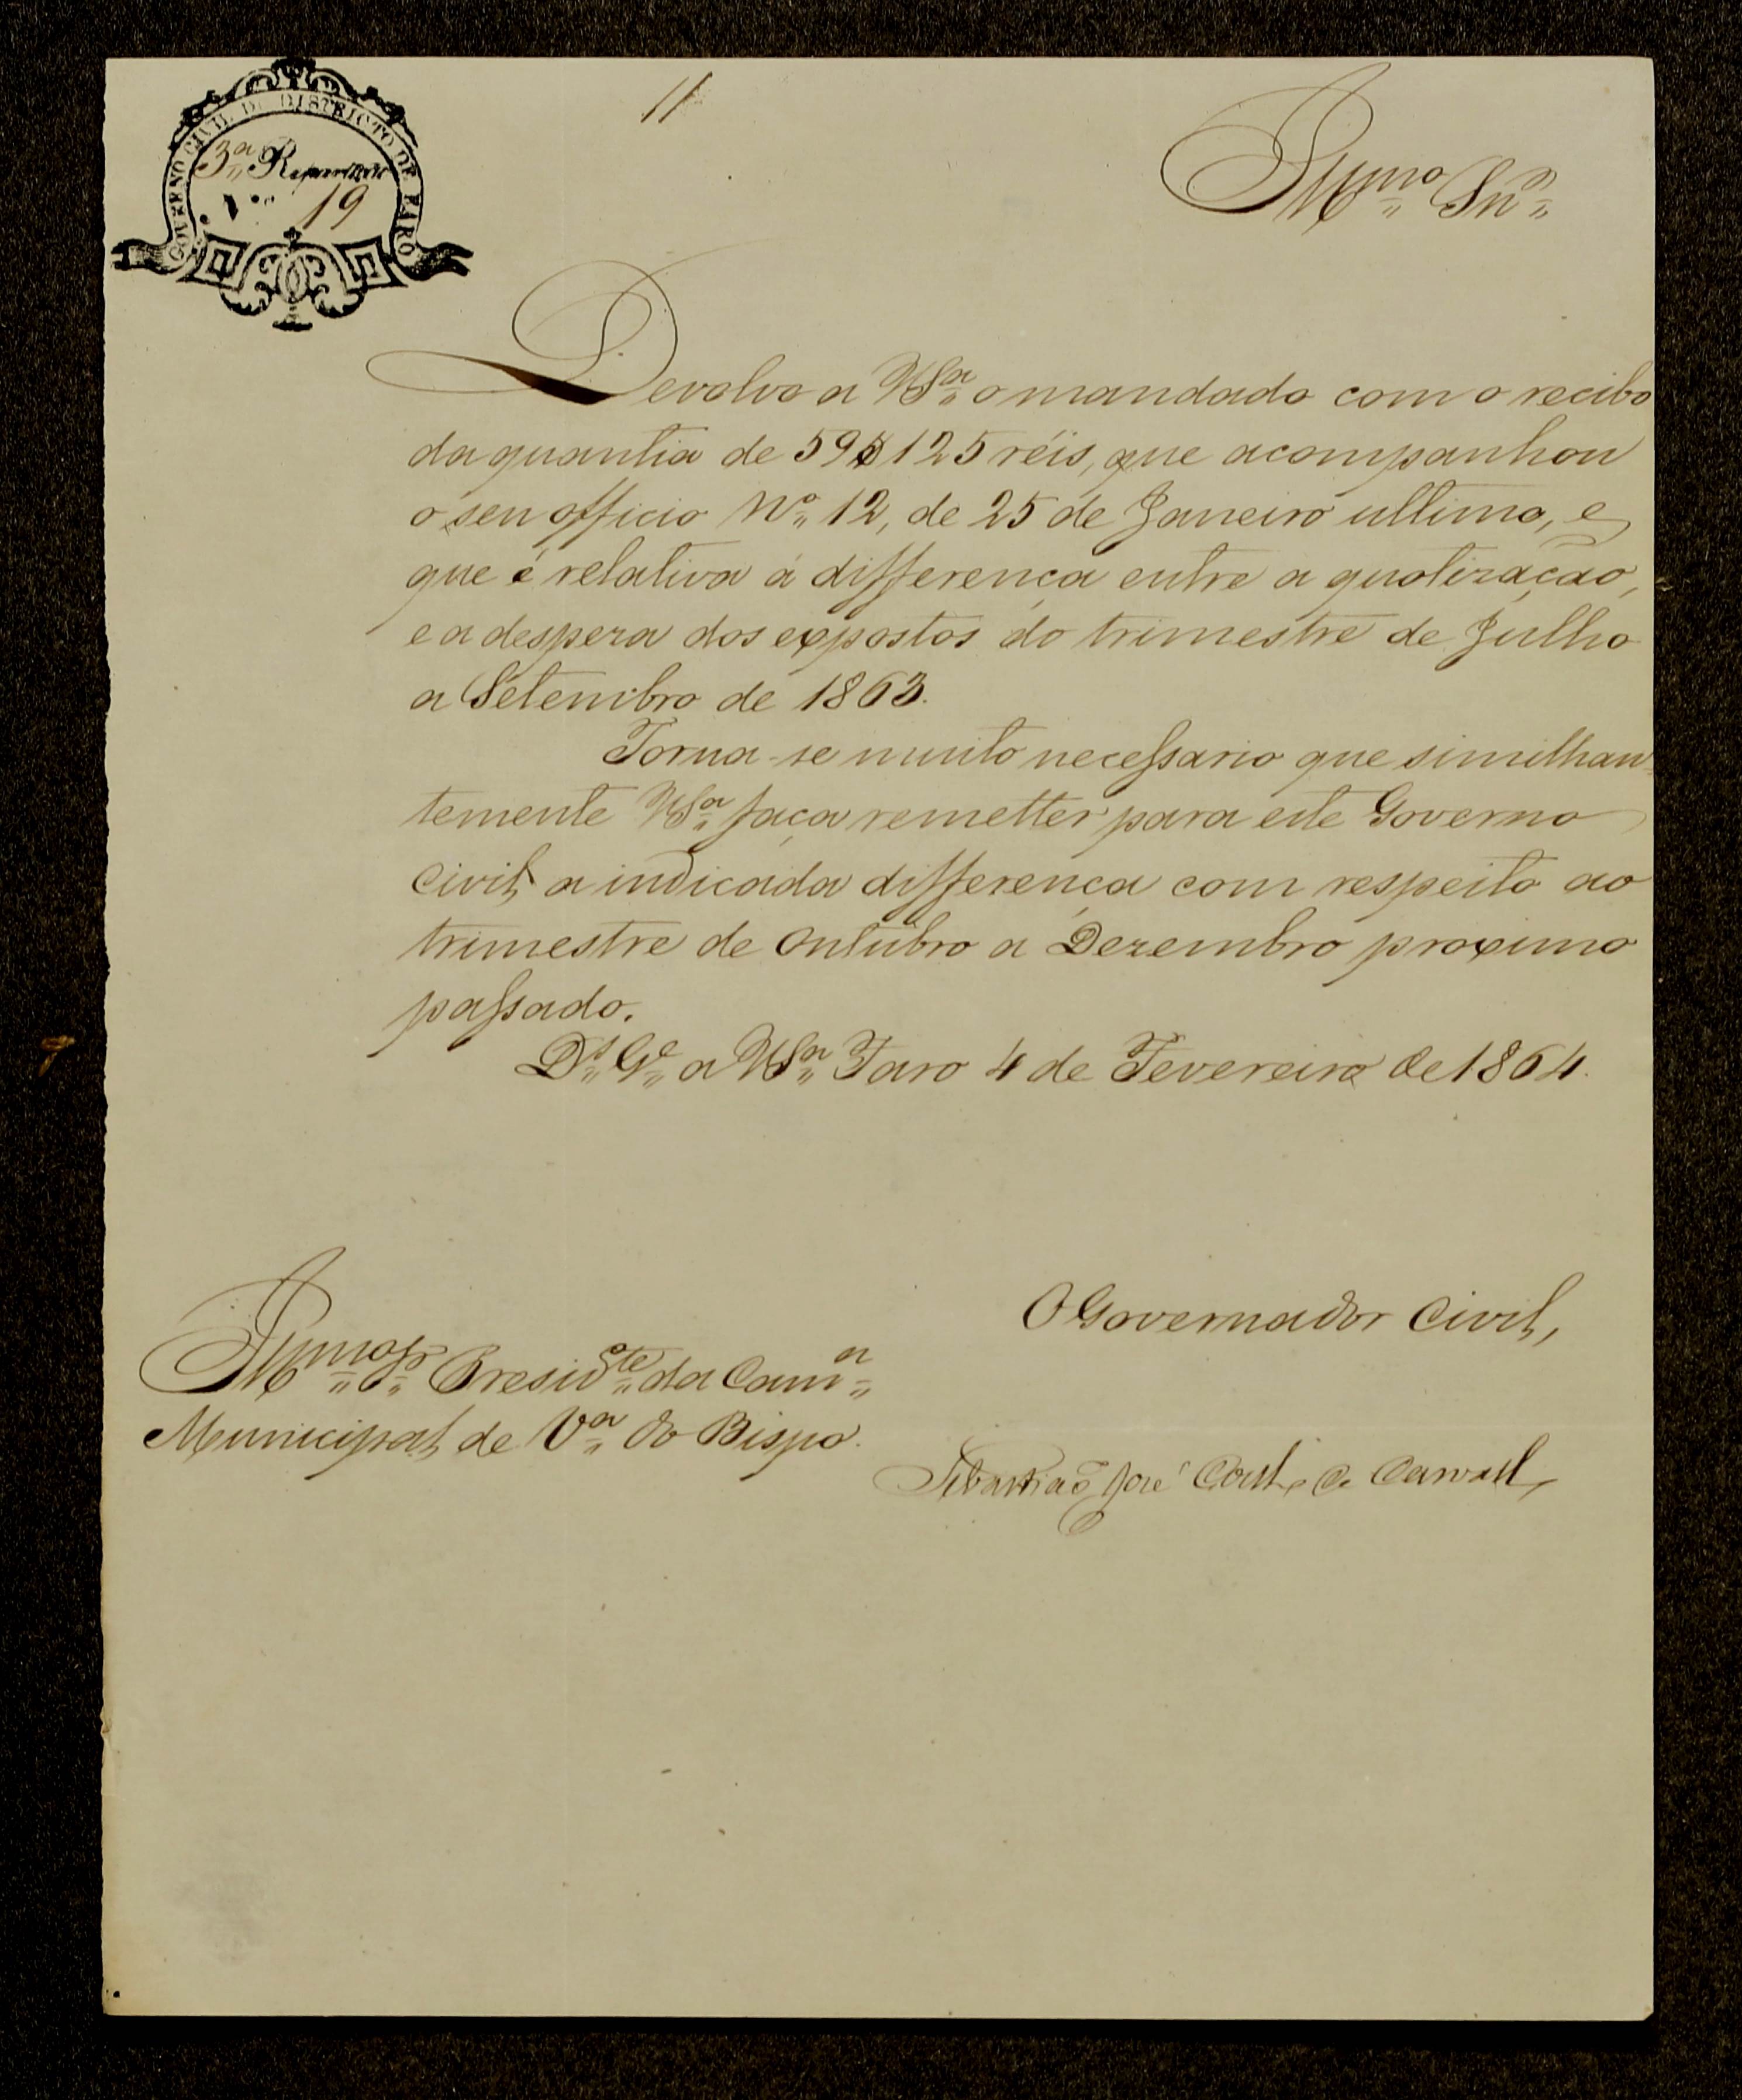 GOVERNO CIVIL DO DISTRICTO DE FARO
3ª Repartição
N.º 19
11
Illmo Snr
Devolvo a VSª o mandado com o recibo
da quantia de 59$125 réis, que acompanhou
o seu officio Nº 12, de 25 de Janeiro ultimo, e
que é relativa á differença entre a quotização,
e a despeza dos expostos do trimestre de Julho
a Setembro de 1863.
Torna-se muito necessario que similhan-
temente VSª faça remetter para este Governo
Civil a indicada differença com respeito ao
trimestre de Outubro a Dezembro proximo
passado.
Ds Ge a VSª Faro 4 de Fevereiro de 1864.
O Governador Civil,
Illmo Sr Presidte da Camª
Municipal de Vª do Bispo.
Sebastião José Coelho de Carvalho